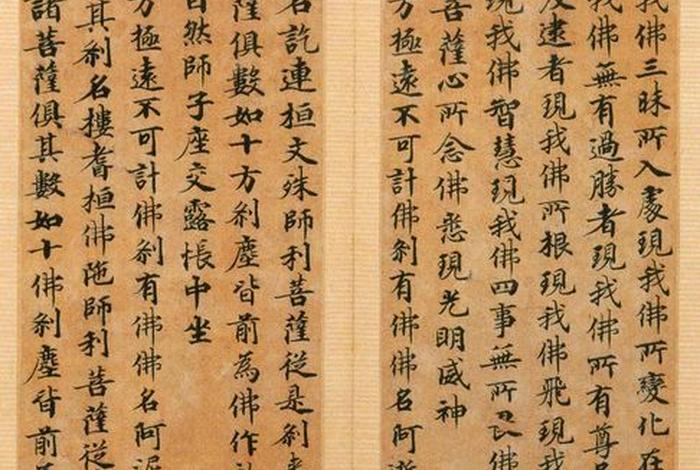 我佛三昧所入處現我佛所變化在
我佛無有過勝者現我佛所有尊
及逮者現我佛所根現我佛飛現我
現我佛智慧現我佛四事無所畏佛
菩薩心所念佛悉現光明威神
方極遠不可計佛剎有佛佛名阿
名訖連桓文殊師利菩薩從是剎來
薩俱數如十方剎塵皆前為佛作
自然師子座交露帳中坐
方極遠不可計佛剎有佛佛名阿泥
其剎名樓耆桓佛陁師利菩薩從
諸菩薩俱其數如十佛剎塵皆前